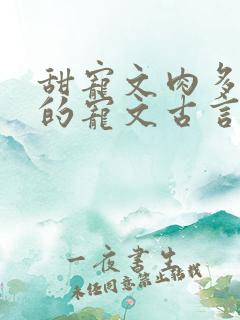 甜宠文肉多
的宠文古言
一夜书生
未经同意禁止转载